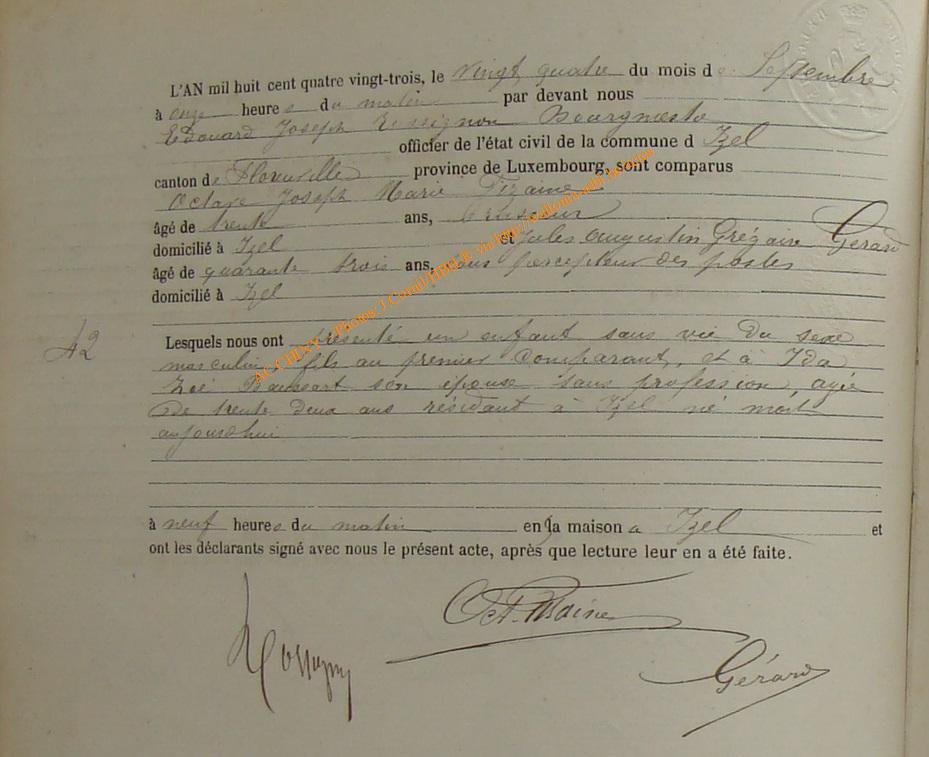 L'AN mil huit cent quatre vingt-trois, le vingt quatre du mois de Septembre
à onze heures du matin par devant nous
Edouard Joseph Rossignon Bourgmestre
officier de l'état civil de la commune d Izel
canton de Florenville province de Luxembourg, sont comparus
Octave Joseph Marie
âgé de trente ans, brasseur
domicilié à Izel et Jules Augustin Grégoire Gérard
âgé de quarante trois ans, sous percepteur des postes
domicilié à Izel
42
Lesquels nous ont présenté un enfant sans vie du sexe
masculin fils au premier comparant, et à Ida
Zoé son épouse sans profession, agée
de trente deux ans résidant à Izel né mort
aujourd'hui
à neuf heures du matin en la maison a Izel et
ont les déclarants signé avec nous le présent acte, après que lecture leur en a été faite.
Oct.
Rossignon
Gérard